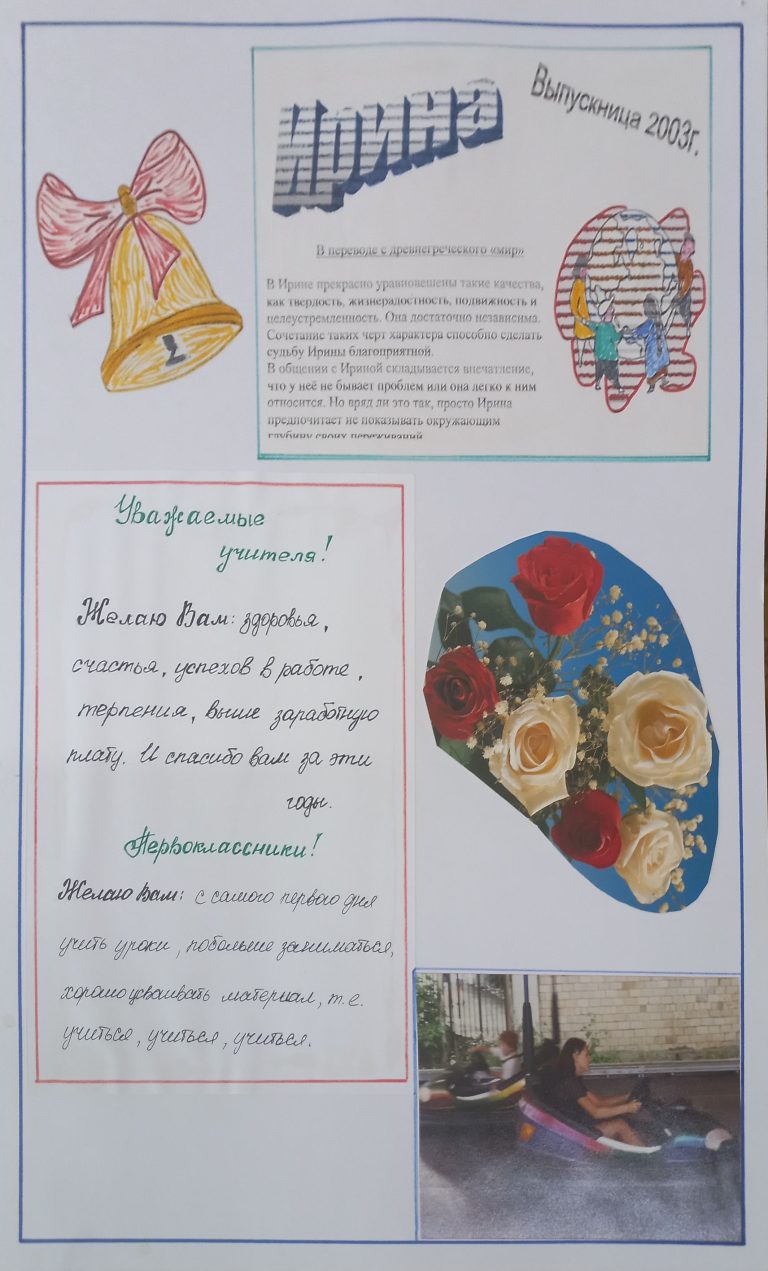 Ирина
Выпускница 2003г.
В переводе с древнегреческого «мир»
В Ирине прекрасно уравновешены такие качества,
как твердость, жизнерадостность, подвижность и
целеустремленность. Она достаточно независима.
Сочетание таких черт характера способно сделать
судьбу Ирины благоприятной.
В общении с Ириной складывается впечатление,
что у неё не бывает проблем или она легко к ним
относится. Но вряд ли это так, просто Ирина
предпочитает не показывать окружающим
глубину своих переживаний
Уважаемые
учителя!
Желаю Вам: здоровья,
счастья, успехов в работе,
терпения, выше заработную
плату. И спасибо вам за эти
годы.
Первоклассники!
Желаю Вам: с самого первого дня
учить уроки, побольше заниматься,
хорошо усваивать материал, т.е.
учиться, учиться, учиться.